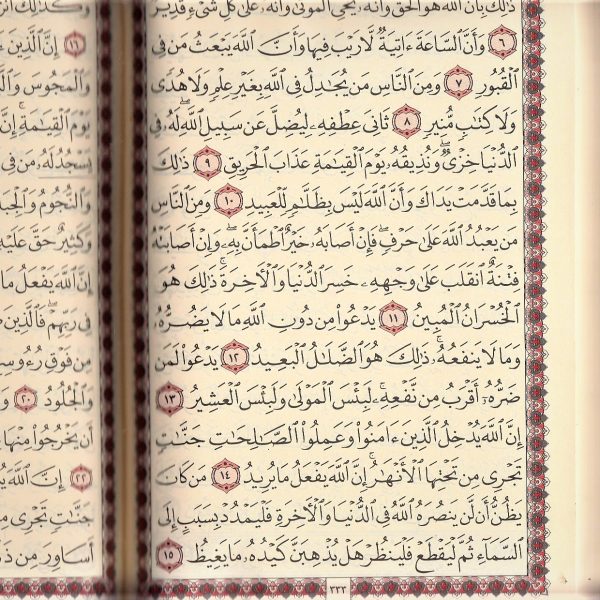 ذَٰلِكَ بِأَنَّ ٱللَّهَ هُوَ ٱلْحَقُّ وَأَنَّهُۥ يُحْىِ ٱلْمَوْتَىٰ وَأَنَّهُۥ عَلَىٰ كُلِّ شَىْءٍ قَدِيرٌ
٦ وَأَنَّ ٱلسَّاعَةَ ءَاتِيَةٌ لَّا رَيْبَ فِيهَا وَأَنَّ ٱللَّهَ يَبْعَثُ مَن فِى
ٱلْقُبُورِ ٧ وَمِنَ ٱلنَّاسِ مَن يُجَٰدِلُ فِى ٱللَّهِ بِغَيْرِ عِلْمٍ وَلَا هُدًى
وَلَا كِتَٰبٍ مُّنِيرٍ ٨ ثَانِىَ عِطْفِهِۦ لِيُضِلَّ عَن سَبِيلِ ٱللَّهِۖ لَهُۥ فِى
ٱلدُّنْيَا خِزْىٌۖ وَنُذِيقُهُۥ يَوْمَ ٱلْقِيَٰمَةِ عَذَابَ ٱلْحَرِيقِ ٩ ذَٰلِكَ
بِمَا قَدَّمَتْ يَدَاكَ وَأَنَّ ٱللَّهَ لَيْسَ بِظَلَّٰمٍ لِّلْعَبِيدِ ١٠ وَمِنَ ٱلنَّاسِ
مَن يَعْبُدُ ٱللَّهَ عَلَىٰ حَرْفٍۖ فَإِنْ أَصَابَهُۥ خَيْرٌ ٱطْمَأَنَّ بِهِۦۖ وَإِنْ أَصَابَتْهُ
فِتْنَةٌ ٱنقَلَبَ عَلَىٰ وَجْهِهِۦ خَسِرَ ٱلدُّنْيَا وَٱلْءَاخِرَةَۚ ذَٰلِكَ هُوَ
ٱلْخُسْرَانُ ٱلْمُبِينُ ١١ يَدْعُوا۟ مِن دُونِ ٱللَّهِ مَا لَا يَضُرُّهُۥ
وَمَا لَا يَنفَعُهُۥۚ ذَٰلِكَ هُوَ ٱلضَّلَٰلُ ٱلْبَعِيدُ ١٢ يَدْعُوا۟ لَمَن
ضَرُّهُۥٓ أَقْرَبُ مِن نَّفْعِهِۦۚ لَبِئْسَ ٱلْمَوْلَىٰ وَلَبِئْسَ ٱلْعَشِيرُ ١٣
إِنَّ ٱللَّهَ يُدْخِلُ ٱلَّذِينَ ءَامَنُوا۟ وَعَمِلُوا۟ ٱلصَّٰلِحَٰتِ جَنَّٰتٍ
تَجْرِى مِن تَحْتِهَا ٱلْأَنْهَٰرُۚ إِنَّ ٱللَّهَ يَفْعَلُ مَا يُرِيدُ ١٤ مَن كَانَ
يَظُنُّ أَن لَّن يَنصُرَهُ ٱللَّهُ فِى ٱلدُّنْيَا وَٱلْءَاخِرَةِ فَلْيَمْدُدْ بِسَبَبٍ إِلَى
ٱلسَّمَآءِ ثُمَّ لْيَقْطَعْ فَلْيَنظُرْ هَلْ يُذْهِبَنَّ كَيْدُهُۥ مَا يَغِيظُ ١٥
٣٣٣
وَكَذَٰلِكَ
١٦ إِنَّ ٱلَّذِينَ
وَٱلْمَجُوسَ
يَوْمَ ٱلْقِيَٰمَةِۚ إِنَّ
يَسْجُدُ لَهُۥ مَن فِى
وَٱلنُّجُومُ
وَكَثِيرٌ حَقَّ عَلَيْهِ
إِنَّ ٱللَّهَ يَفْعَلُ مَا
فِى رَبِّهِمْۖ فَٱلَّذِينَ
مِن فَوْقِ
وَٱلْجُلُودُ ٢٠
أَن يَخْرُجُوا۟ مِنْهَا
٢٢ إِنَّ ٱللَّهَ
جَنَّٰتٍ تَجْرِى
أَسَاوِرَ مِن